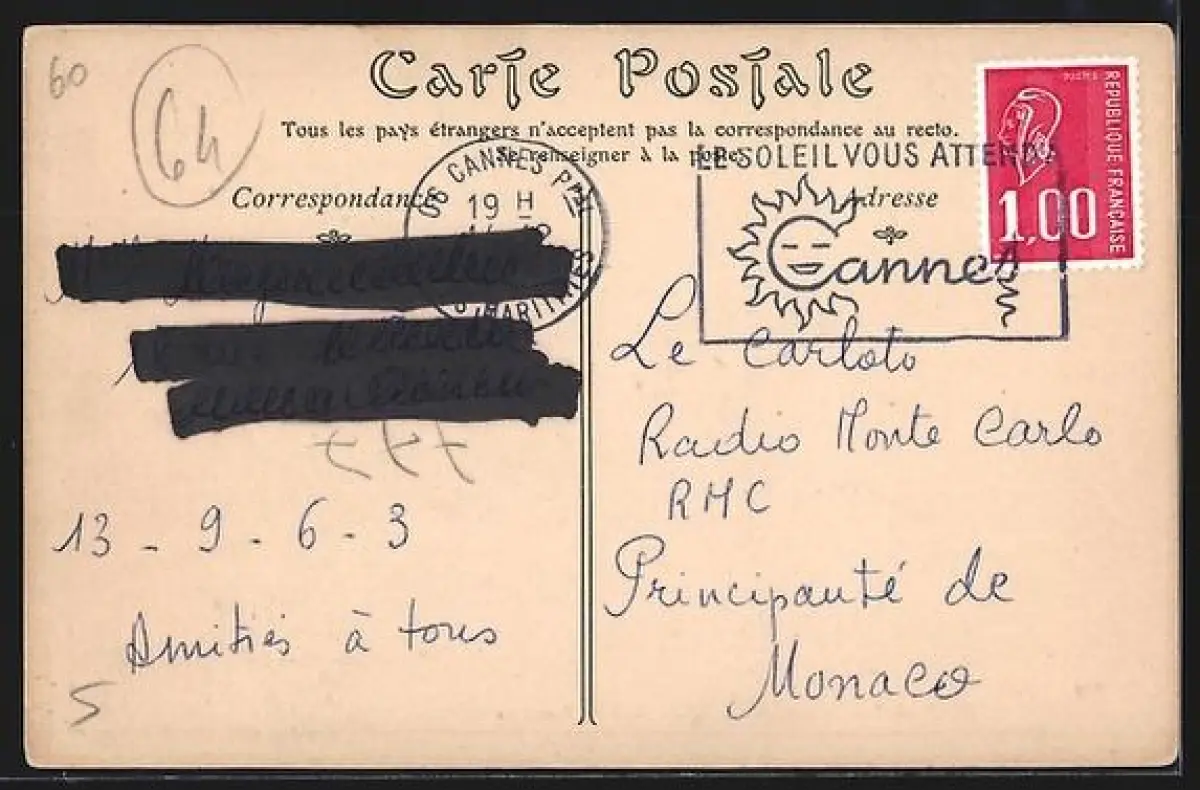 60
64
Carte Postale
Tous les pays étrangers n'acceptent pas la correspondance au recto.
Se renseigner à la poste
Correspondance
Adresse
06 CANNES PPAL
19 H
MARITIMES
LE SOLEIL VOUS ATTEND
Cannes
POSTES
REPUBLIQUE FRANÇAISE
1,00
13 - 9 - 6 - 3
Amitiés à tous
5
Le Carloto
Radio Monte Carlo
RMC
Principauté de
Monaco